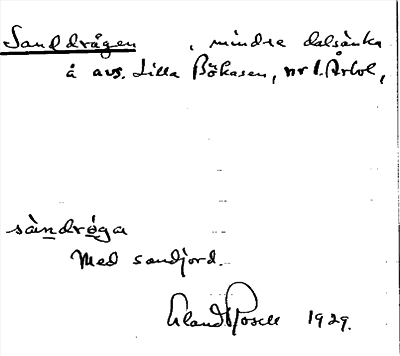 Sanddrågen , mindre dalsänka
å avs. Lilla Bökåsen, nr 1. Årbol,
sàndrǫga
Med sandjord.
Erland Rosell 1929.